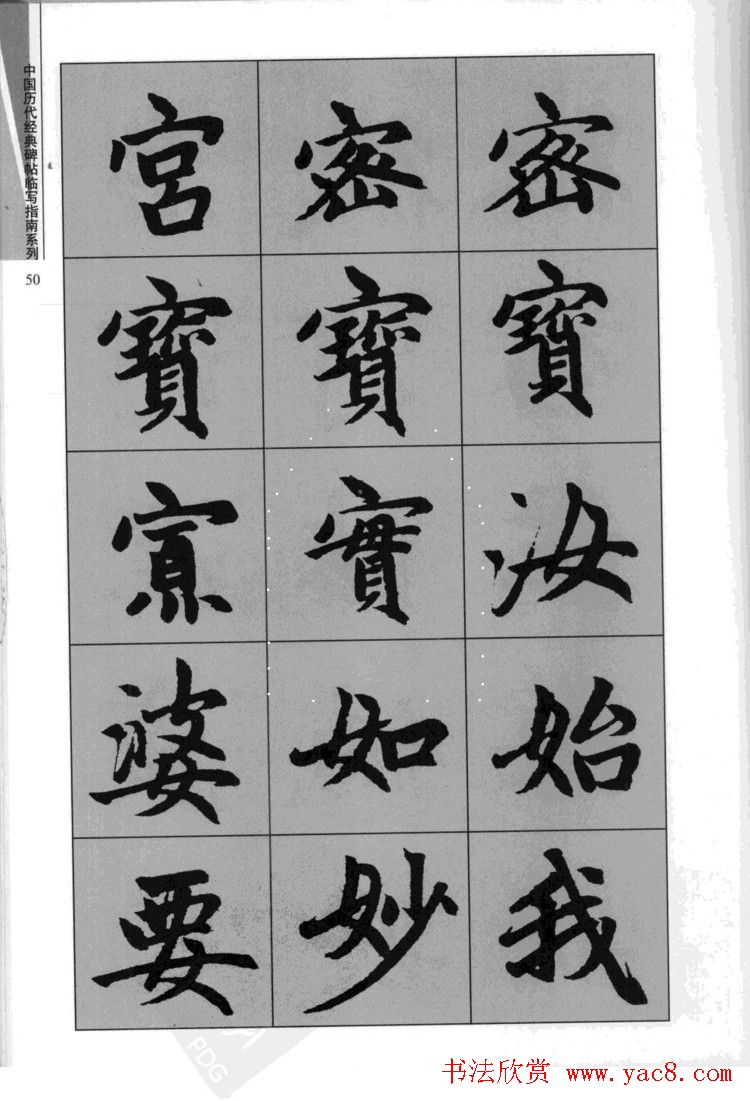 中国历代经典碑帖临写指南系列
50
宮 密 密
寶 寶 寶
實 汝
婆 如 始
要 妙 我
PDG
书法欣赏 www.yac8.com